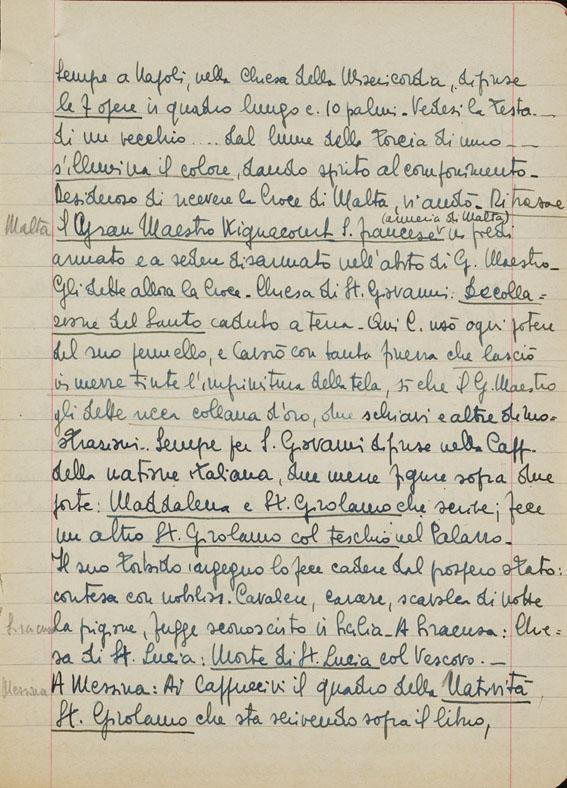 Sempre a Napoli, nella Chiesa della Misericordia, dipinse
le 7 opere in quadro lungo c. 10 palmi. Vedesi la testa
di un vecchio .... dal lume della torcia di uno —
s'illumina il colore, dando spirito al componimento –
Desideroso di ricevere la Croce di Malta, vi andò – Ritrasse
(armeria di Malta)
Malta il Gran Maestro Vignacourt S. francese in piedi
armato e a sedere disarmato nell'abito di G. Maestro –
Gli dette allora la Croce – Chiesa di St. Giovanni: Decolla=
zione del Santo caduto a terra – Qui C. usò ogni potere
del suo pennello, e lavorò con tanta fierezza che lasciò
in mezze tinte l'imprimitura della tela, sì che il G. Maestro
gli dette ricca collana d'oro, due schiavi e altre dimo=
strazioni.. Sempre per S. Giovanni dipinse nella Capp.
della nazione italiana, due mezze figure sopra due
porte: Maddalena e St. Girolamo che scrive; fece
un altro St. Girolamo col teschio nel Palazzo –
Il suo torbido ingegno lo fece cadere dal prospero stato:
contesa con nobiliss. Cavaliere, carcere, scavalca di notte
Siracusa la prigione, fugge sconosciuto in Sicilia – A Siracusa: Chie=
sa di St. Lucia: Morte di St. Lucia col Vescovo. –
Messina A Messina: Ai Cappuccini il quadro della Natività
St. Girolamo che sta scrivendo sopra il libro,